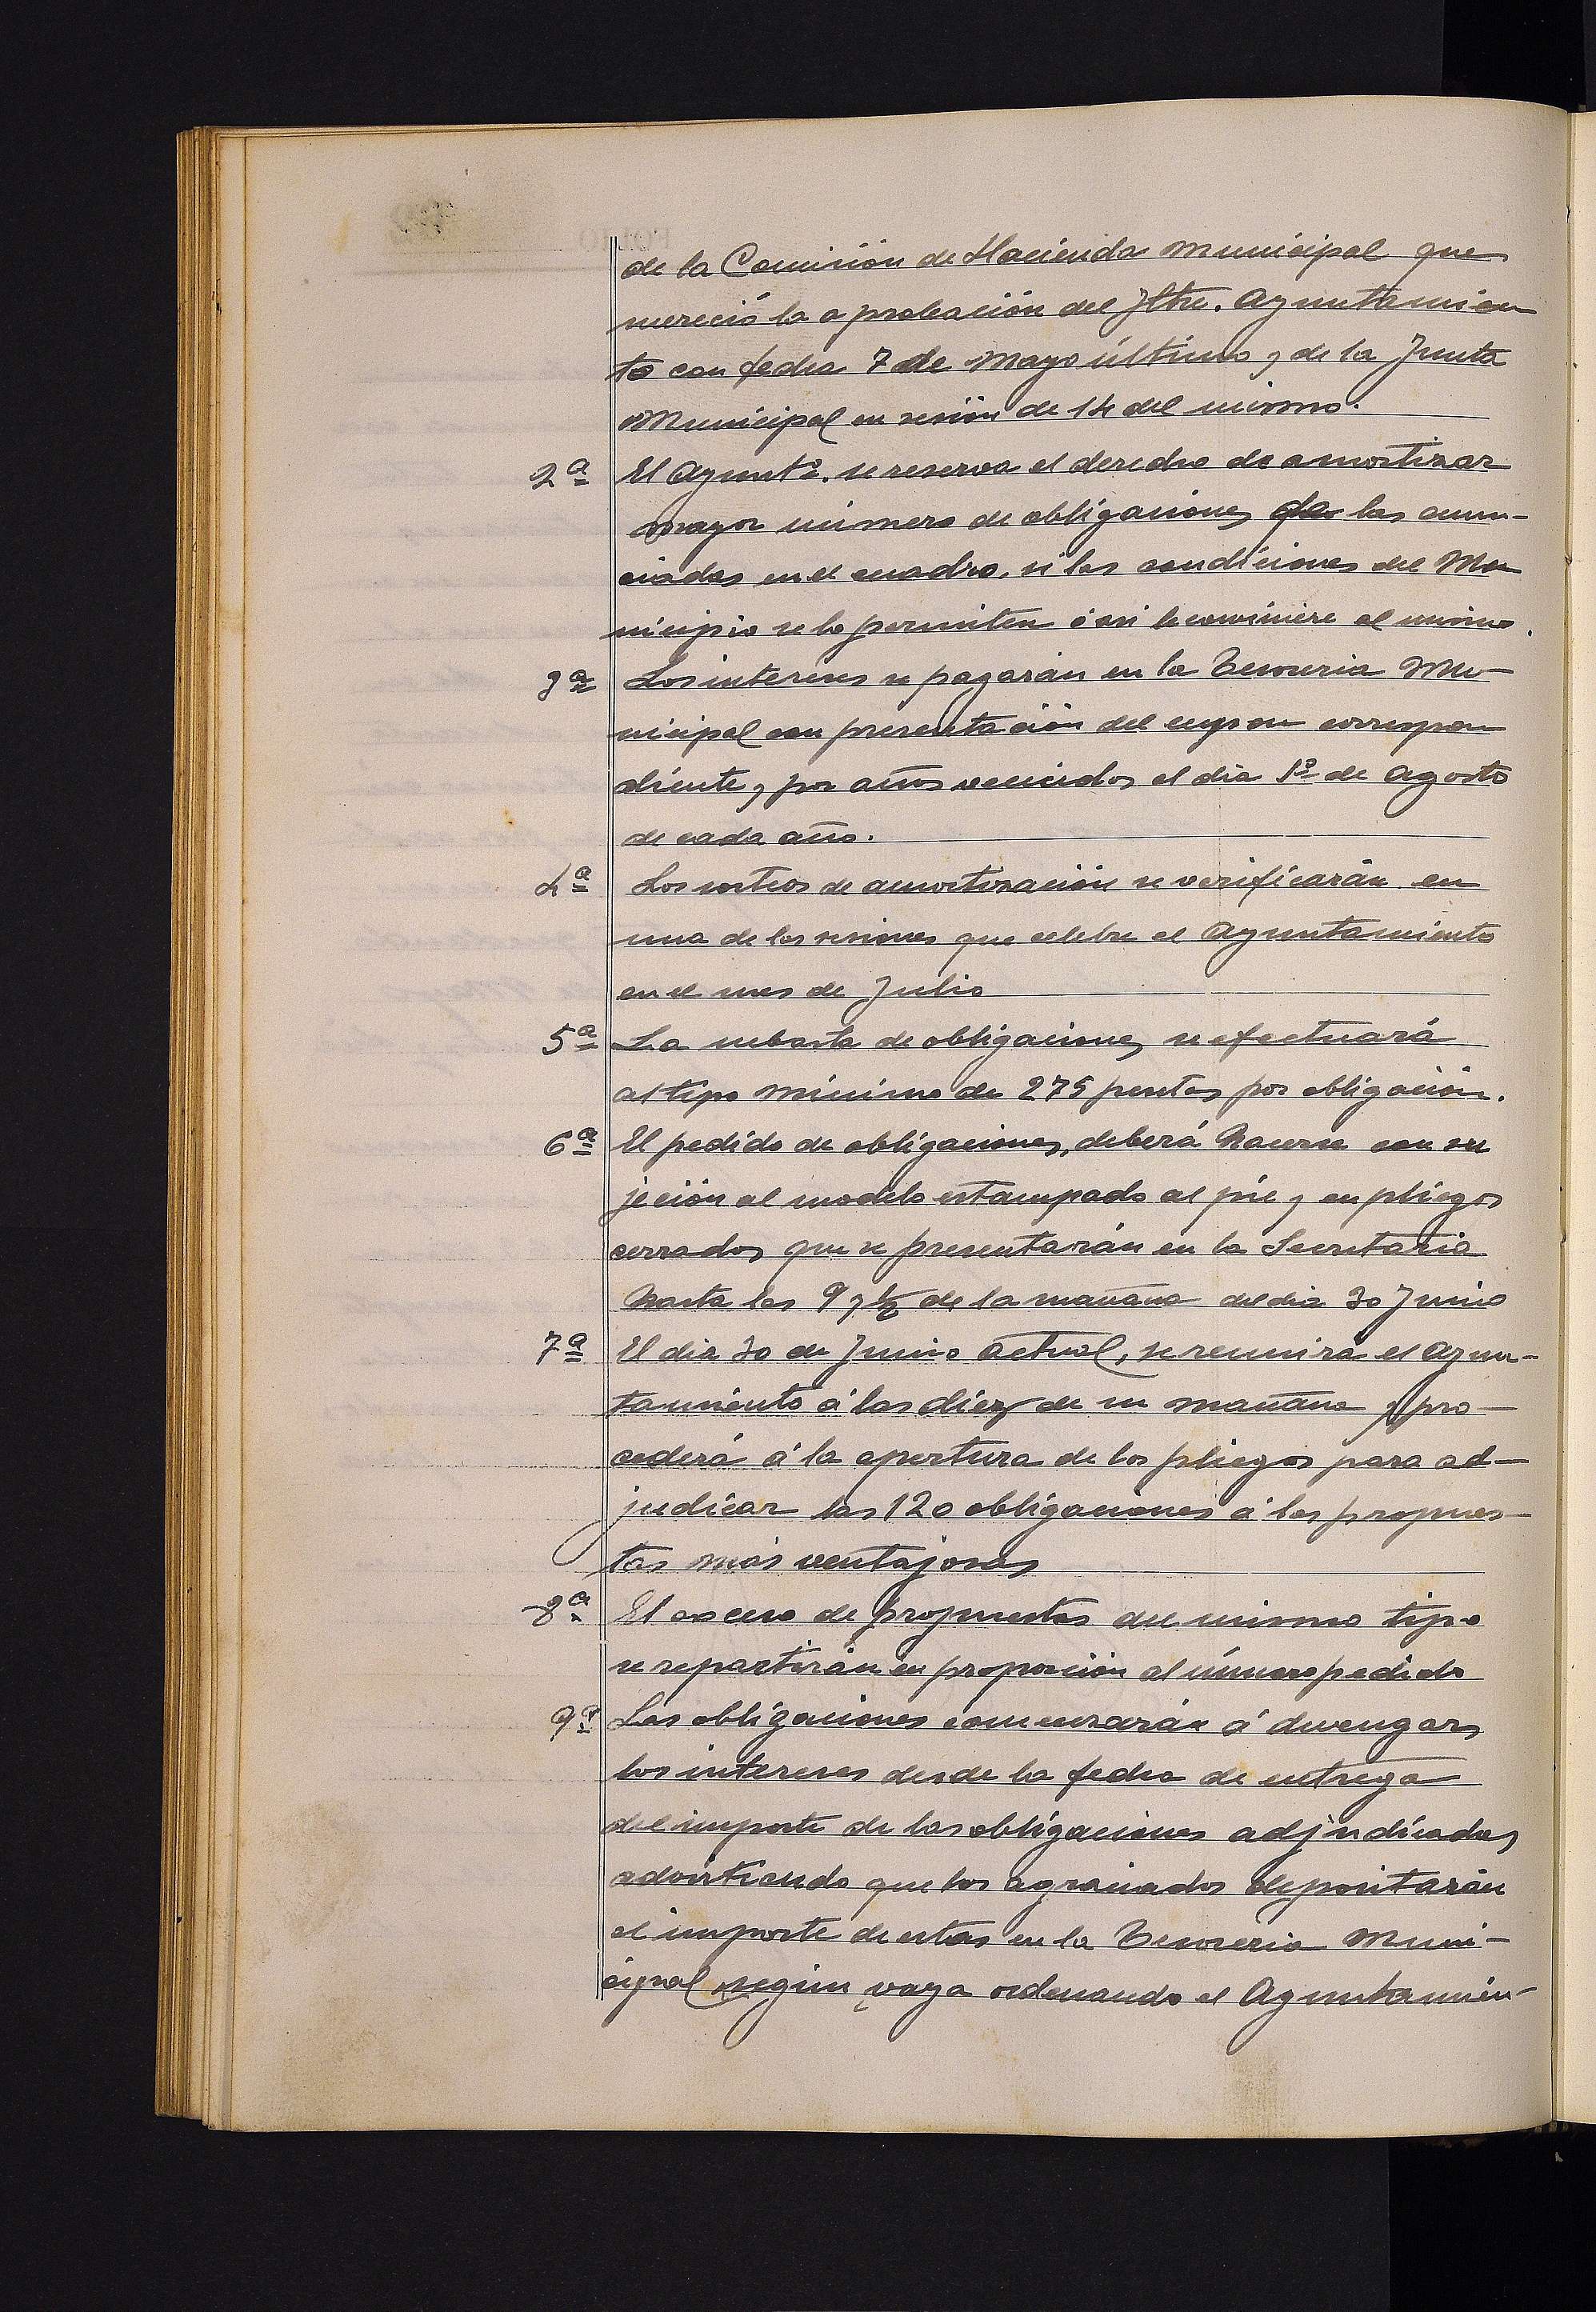 de la Comisión de Hacienda Municipal que
mereció la aprobación del Iltre. Ayuntamien
to con fecha 7 de Mayo último y de la Junta
Municipal en sesión de 14 del mismo.
2ª El Ayuntº. se reserva el derecho de amortizar
mayor número de obligaciones de las anun-
ciadas en el cuadro, si las condiciones del Mu
nicipio se lo permiten ó asi le conviniere al mismo.
3ª Los intereses se pagarán en la Tesoreria Mu-
nicipal con presentación del cupon correspon
diente y por años vencidos el dia 1º de Agosto
de cada año.
4ª Los sorteos de amortización se verificarán en
una de las sesiones que celebre el Ayuntamiento
en el mes de Julio
5ª La subasta de obligaciones se efectuará
al tipo mínimo de 275 pesetas por obligación.
6ª El pedido de obligaciones, deberá hacerse con su
jeción al modelo estampado al pie y en pliegos
cerrados que se presentarán en la Secretaria
hasta las 9 y ½ de la mañana del dia 30 Junio
7ª El dia 30 de Junio actual, se reunirá el Ayun-
tamiento á las diez de su mañana y pro-
cederá á la apertura de los pliegos para ad-
judicar las 120 obligaciones á las propues-
tas más ventajosas
8ª El exceso de propuestas del mismo tipo
se repartirán en proporción al número pedido
9ª Las obligaciones comenzarán á devengar
los intereses desde la fecha de entrega
del importe de las obligaciones adjudicadas
advirtiendo que los agraciados depositarán
el importe de estas en la Tesoreria Muni-
cipal según vaya ordenando el Ayuntamien-